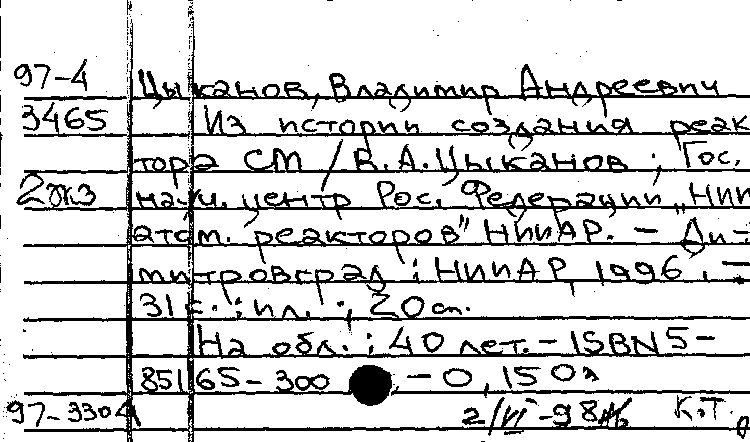 97-4 Цыканов, Владимир Андреевич
3465 Из истории создания реак
тора СМ / В.А.Цыканов ; Гос.
2экз науч. центр Рос. Федерации „НИИ
атом. реакторов" НИИАР. - Ди-
митровград : НИИАР, 1996. -
31 с. : ил. ; 20 см.
На обл. : 40 лет. - ISBN 5-
85165-300 , - 0, 150
97-3304 2/VI-98 К.Т.